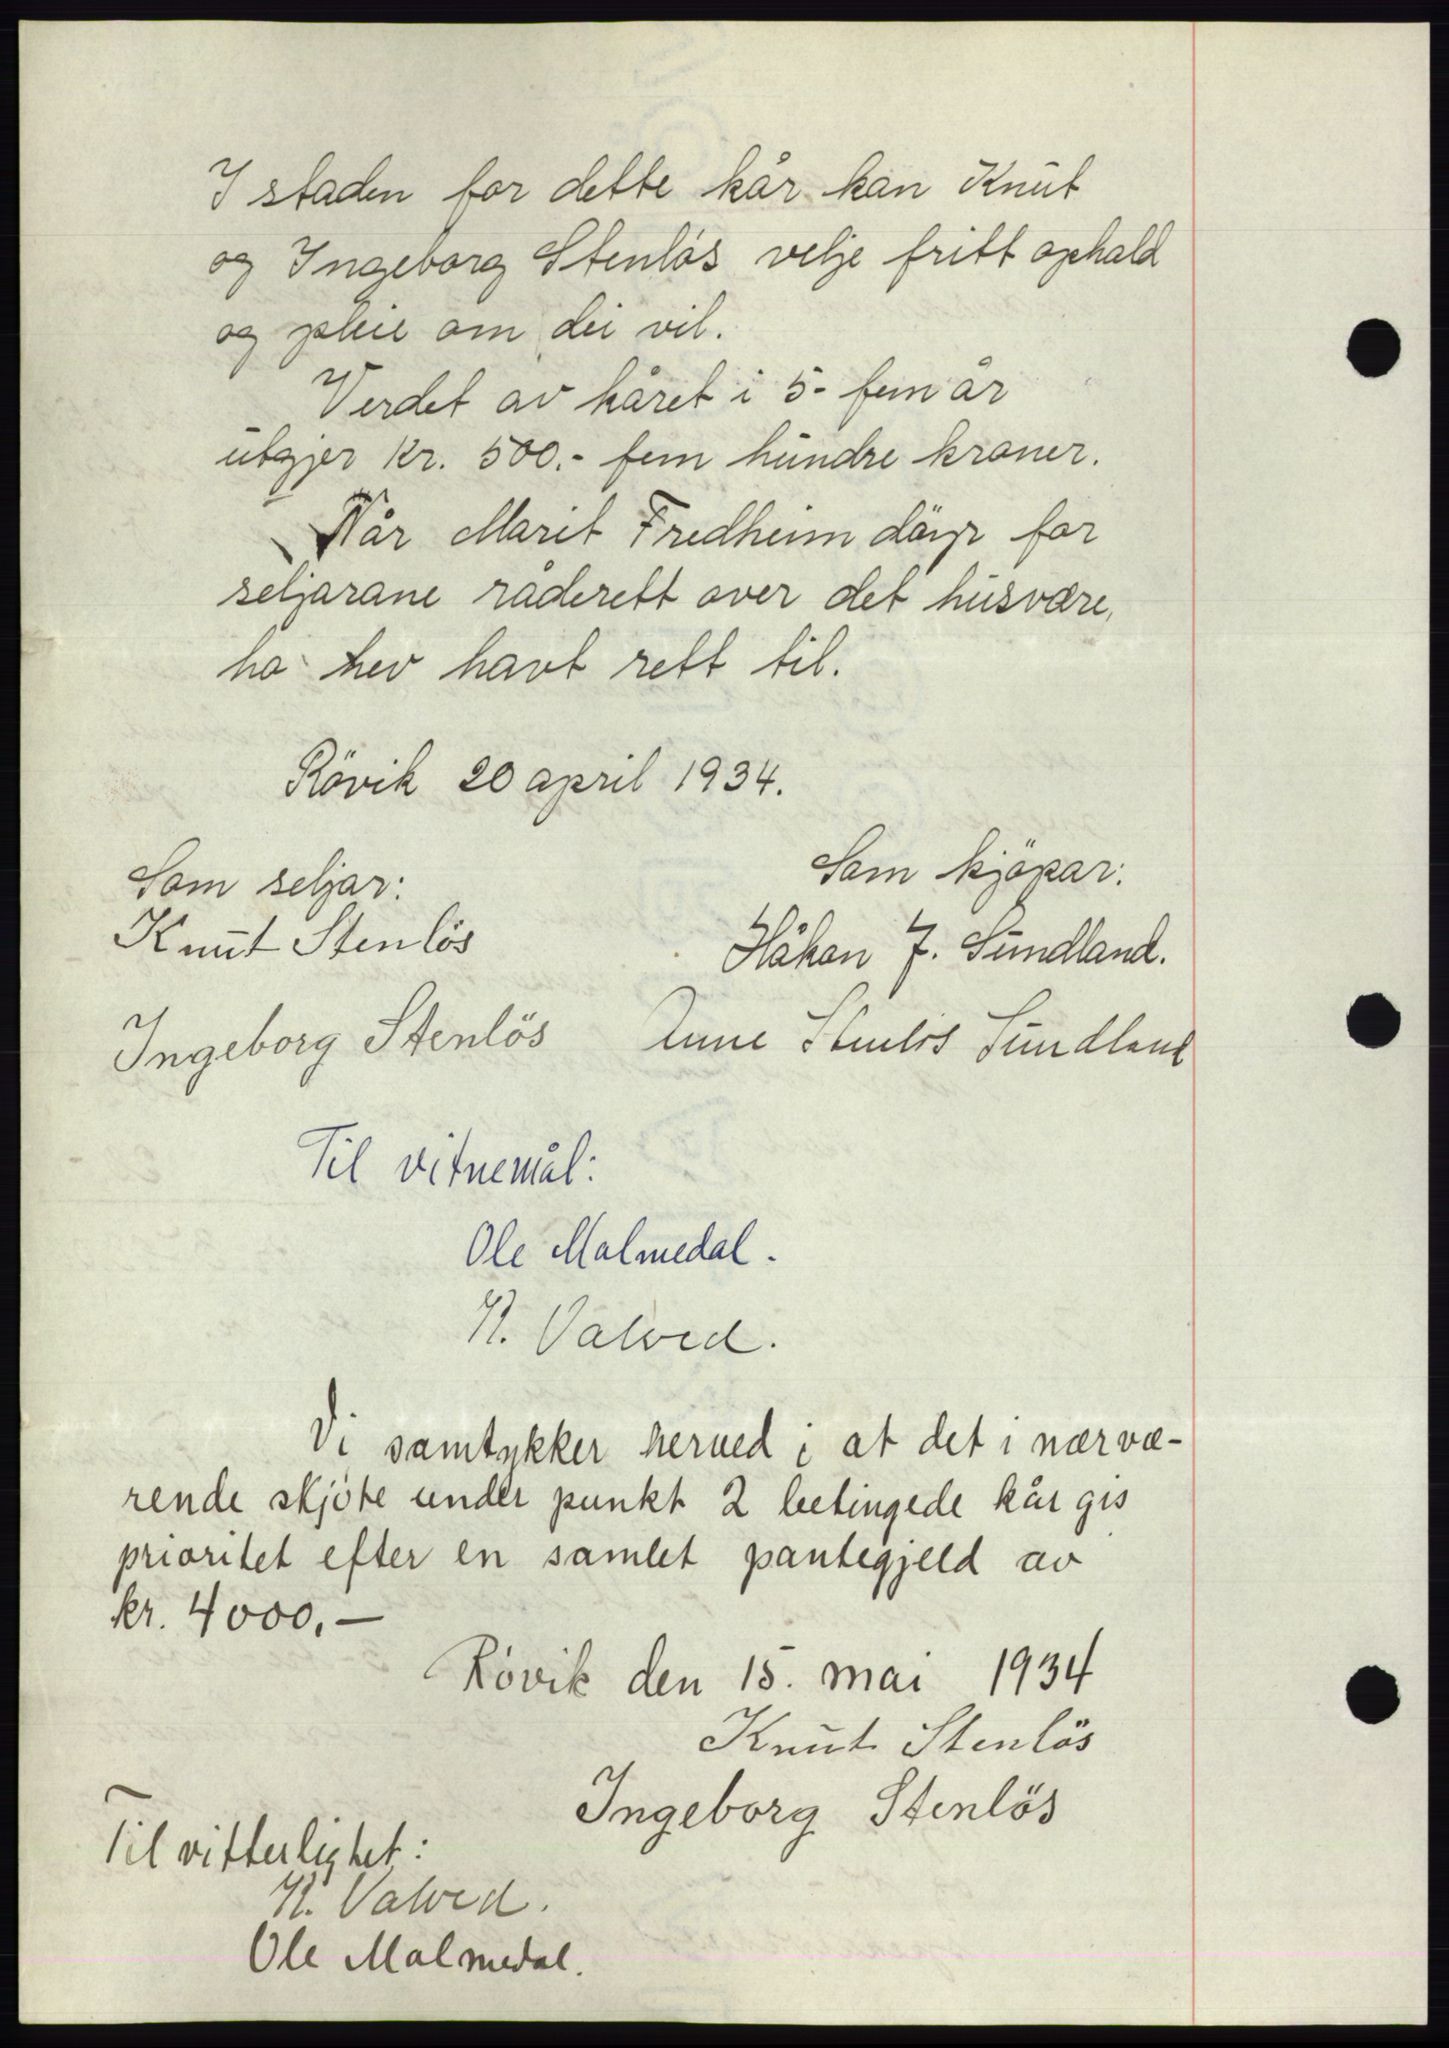 I staden for dette kår kan Knut
og Ingeborg Stenlös velje fritt ophald
og pleie om dei vil.
Verdet av kåret i 5- fem år
utgjer kr. 500.- fem hundre kroner.
Når Marit Fredheim döyr for
seljarane råderett over det husvære,
ho hev havt rett til.
Rövik 20 april 1934.
Som seljar:
Knut Stenlös
Ingeborg Stenlös
Som kjöpar:
Håkon J. Sundland.
Anne Stenlös Sundland
Til vitnemål:
Ole Malmedal.
N. Valved.
Vi samtykker herved i at det i nærvæ-
rende skjøte under punkt 2 betingede kår gis
prioritet efter en samlet pantegjeld av
kr. 4000.—
Røvik den 15. mai 1934
Knut Stenlös
Ingeborg Stenlös
Til vitterlighet:
N. Valved.
Ole Malmedal.